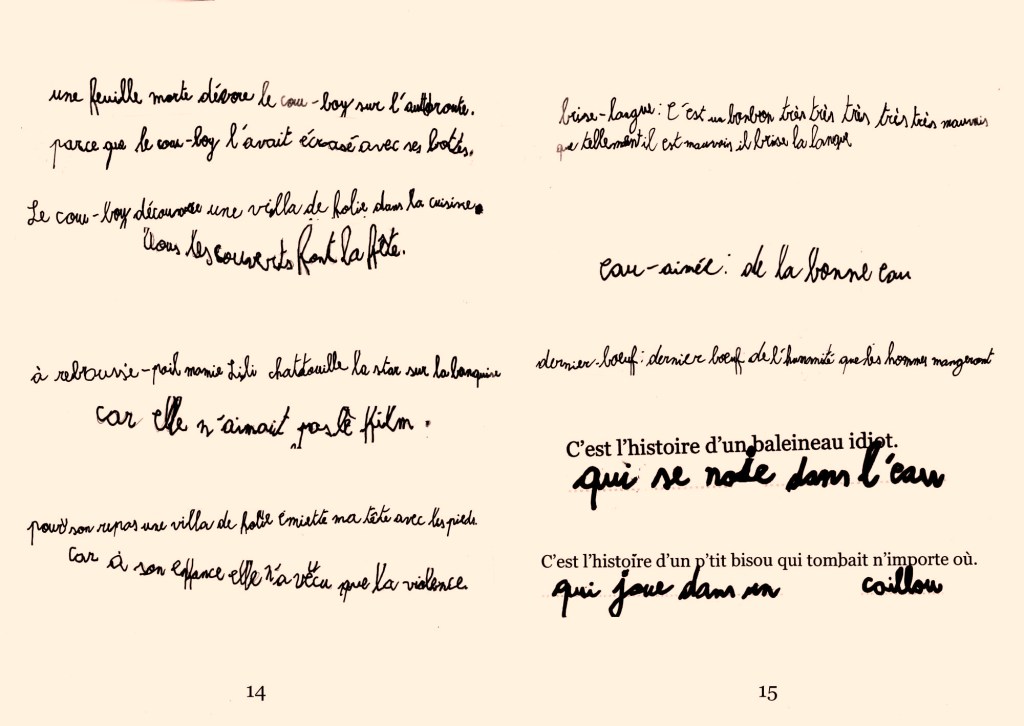 une feuille morte dévore le cow-boy sur l'autoroute.
parce que le cow-boy l'avait écrasé avec ses bottes.
Le cow-boy découvre une villa de folie dans la cuisine.
tous les couverts font la fête.
à rebrousse-poil mamie Lili chattouille la star sur la banquise
car elle n'aimait pas le film.
pour son repas une villa de folie émiette ma tête avec les pieds.
car à son enfance elle n'a vécu que la violence.
14
brise-langue : C'est un bonbon très très très très très mauvais
que tellement il est mauvais il brise la langue
eau-aimée : de la bonne eau
dernier-boeuf : dernier boeuf de l'humanité que les hommes mangeront
C'est l'histoire d'un baleineau idiot.
qui se noie dans l'eau
C'est l'histoire d'un p'tit bisou qui tombait n'importe où.
qui joue dans un caillou
15